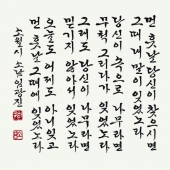 먼 훗날 당신이 찾으시면
그때 내 말이 잊었노라
당신이 속으로 나무라면
무척 그리다가 잊었노라
그래도 당신이 나무라면
믿기지 않아서 잊었노라
오늘도 어제도 아니 잊고
먼 훗날 그때에 잊었노라
소월시